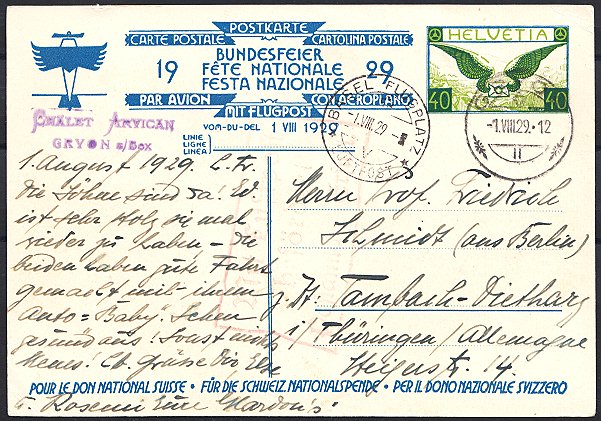 POSTKARTE
CARTE POSTALE CARTOLINA POSTALE
BUNDESFEIER
19 FÊTE NATIONALE 29
FESTA NAZIONALE
PAR AVION CON AEROPLANO
MIT FLUGPOST
VOM-DU-DEL 1 VIII 1929
LINIE
LIGNE
LINEA
HELVETIA
40 40
BASEL FLUGPLATZ
-1.VIII.29
LUFTPOST
-1.VIII.29.12
II
CHÂLET ARVICAN
GRYON s/Bex
1. August 1929. L. Fr.
Die Söhne sind da! Ed.
ist sehr stolz sie mal
wieder zu haben - die
beiden haben gute Fahrt
gemacht mit ihrem
Auto-"Baby". Sehen
gesund aus! Sonst nichts
Neues. Lb. Grüsse Dir, Else
u. Rosemi Eure
Herrn Prof. Friedrich
Schmidt (aus Berlin)
z. Zt. Tambach-Dietharz
i/Thüringen/Allemagne
14.
POUR LE DON NATIONAL SUISSE · FÜR DIE SCHWEIZ. NATIONALSPENDE · PER IL DONO NAZIONALE SVIZZERO